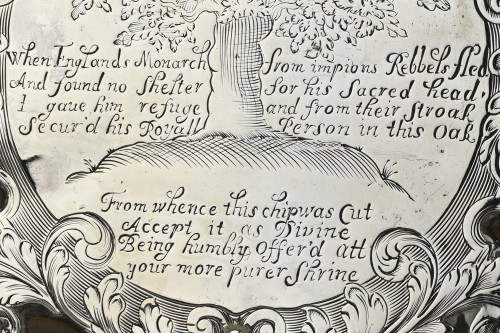 When Englands Monarch from impious Rebbels fled
And found no shelter for his Sacred head;
I gaue him refuge and from their stroak
Secur'd his Royall Person in this Oak
From whence this chip was Cut
Accept it as Divine
Being humbly Offer'd att
your more purer Shrine